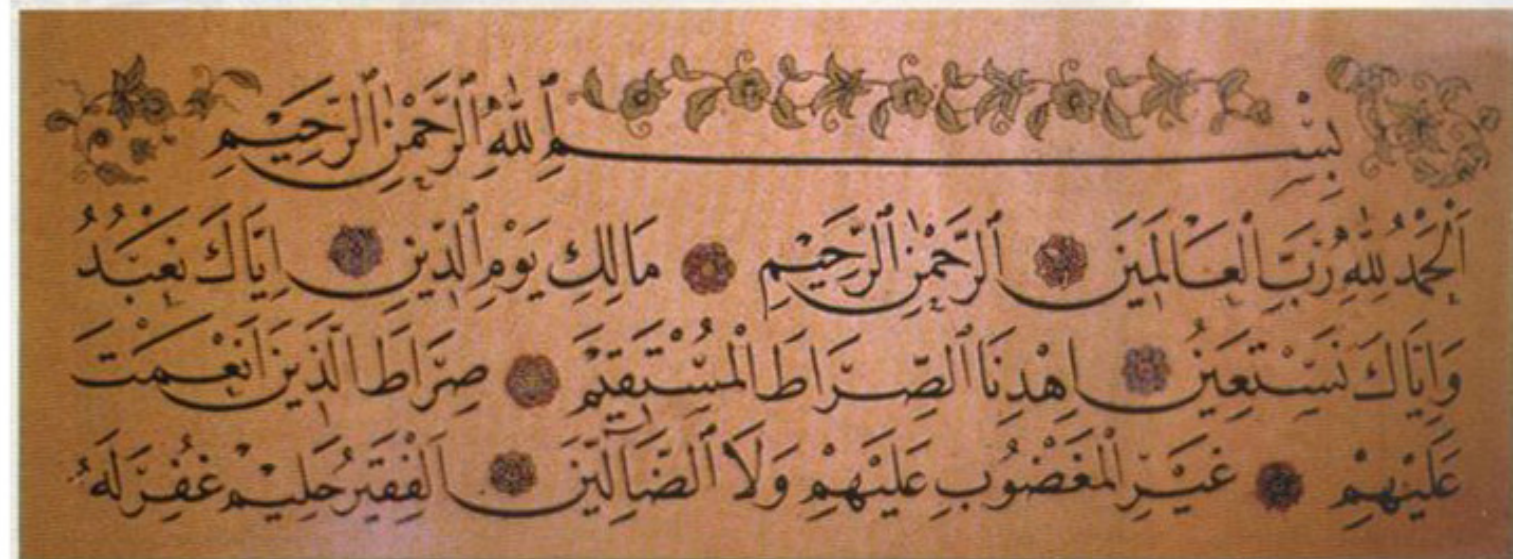 بِسْمِ اللهِ الرَّحْمٰنِ الرَّحِيْمِ
اَلْحَمْدُ لِلّٰهِ رَبِّ الْعَالَمِيْنَ الرَّحْمٰنِ الرَّحِيْمِ مَالِكِ يَوْمِ الدِّيْنِ اِيَّاكَ نَعْبُدُ
وَاِيَّاكَ نَسْتَعِيْنُ اِهْدِنَا الصِّرَاطَ الْمُسْتَقِيْمَ صِرَاطَ الَّذِيْنَ اَنْعَمْتَ
عَلَيْهِمْ غَيْرِ الْمَغْضُوبِ عَلَيْهِمْ وَلَا الضَّالِّيْنَ اَلْفَقِيْرُ حَلِيْم غُفِرَ لَهُ